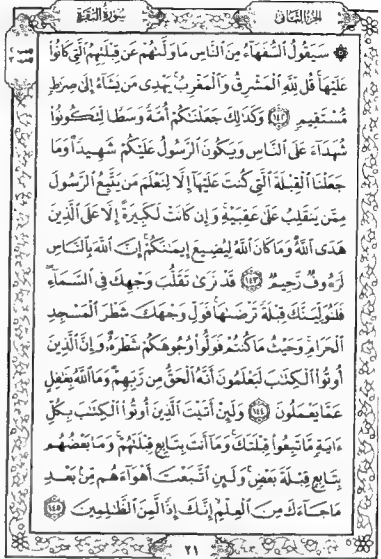 الجزء الثاني
سورة البقرة
۞ سَيَقُولُ ٱلسُّفَهَآءُ مِنَ ٱلنَّاسِ مَا وَلَّىٰهُمْ عَن قِبْلَتِهِمُ ٱلَّتِى كَانُوا۟
عَلَيْهَا ۚ قُل لِّلَّهِ ٱلْمَشْرِقُ وَٱلْمَغْرِبُ ۚ يَهْدِى مَن يَشَآءُ إِلَىٰ صِرَٰطٍ
مُّسْتَقِيمٍ ١٤٢ وَكَذَٰلِكَ جَعَلْنَٰكُمْ أُمَّةً وَسَطًا لِّتَكُونُوا۟
شُهَدَآءَ عَلَى ٱلنَّاسِ وَيَكُونَ ٱلرَّسُولُ عَلَيْكُمْ شَهِيدًا ۗ وَمَا
جَعَلْنَا ٱلْقِبْلَةَ ٱلَّتِى كُنتَ عَلَيْهَآ إِلَّا لِنَعْلَمَ مَن يَتَّبِعُ ٱلرَّسُولَ
مِمَّن يَنقَلِبُ عَلَىٰ عَقِبَيْهِ ۚ وَإِن كَانَتْ لَكَبِيرَةً إِلَّا عَلَى ٱلَّذِينَ
هَدَى ٱللَّهُ ۗ وَمَا كَانَ ٱللَّهُ لِيُضِيعَ إِيمَٰنَكُمْ ۚ إِنَّ ٱللَّهَ بِٱلنَّاسِ
لَرَءُوفٌ رَّحِيمٌ ١٤٣ قَدْ نَرَىٰ تَقَلُّبَ وَجْهِكَ فِى ٱلسَّمَآءِ ۖ
فَلَنُوَلِّيَنَّكَ قِبْلَةً تَرْضَىٰهَا ۚ فَوَلِّ وَجْهَكَ شَطْرَ ٱلْمَسْجِدِ
ٱلْحَرَامِ ۚ وَحَيْثُ مَا كُنتُمْ فَوَلُّوا۟ وُجُوهَكُمْ شَطْرَهُۥ ۗ وَإِنَّ ٱلَّذِينَ
أُوتُوا۟ ٱلْكِتَٰبَ لَيَعْلَمُونَ أَنَّهُ ٱلْحَقُّ مِن رَّبِّهِمْ ۗ وَمَا ٱللَّهُ بِغَٰفِلٍ
عَمَّا يَعْمَلُونَ ١٤٤ وَلَئِنْ أَتَيْتَ ٱلَّذِينَ أُوتُوا۟ ٱلْكِتَٰبَ بِكُلِّ
ءَايَةٍ مَّا تَبِعُوا۟ قِبْلَتَكَ ۚ وَمَآ أَنتَ بِتَابِعٍ قِبْلَتَهُمْ ۚ وَمَا بَعْضُهُم
بِتَابِعٍ قِبْلَةَ بَعْضٍ ۚ وَلَئِنِ ٱتَّبَعْتَ أَهْوَآءَهُم مِّنۢ بَعْدِ
مَا جَآءَكَ مِنَ ٱلْعِلْمِ ۙ إِنَّكَ إِذًا لَّمِنَ ٱلظَّٰلِمِينَ ١٤٥
٢١